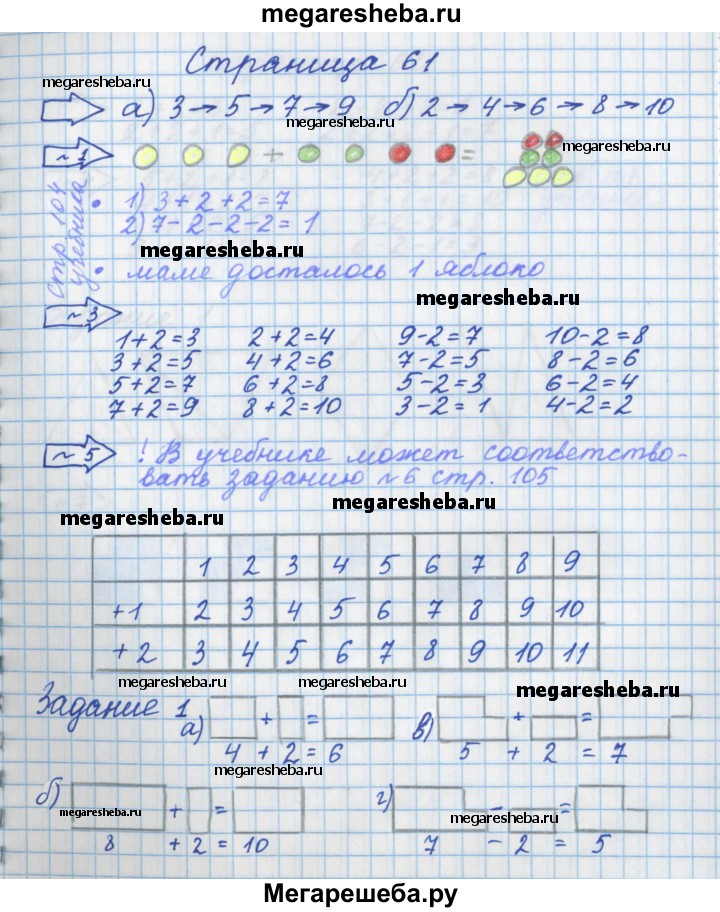 megaresheba.ru
Страница 61
megaresheba.ru
а) 3 → 5 → 7 → 9 б) 2 → 4 → 6 → 8 → 10
megaresheba.ru
~ 1
+ =
стр. 104 учебника
• 1) 3 + 2 + 2 = 7
2) 7 - 2 - 2 - 2 = 1
megaresheba.ru
• маме досталось 1 яблоко
megaresheba.ru
~ 3
1 + 2 = 3 2 + 2 = 4 9 - 2 = 7 10 - 2 = 8
3 + 2 = 5 4 + 2 = 6 7 - 2 = 5 8 - 2 = 6
5 + 2 = 7 6 + 2 = 8 5 - 2 = 3 6 - 2 = 4
7 + 2 = 9 8 + 2 = 10 3 - 2 = 1 4 - 2 = 2
~ 5 ! В учебнике может соответство-
вать заданию ~ 6 стр. 105
megaresheba.ru
megaresheba.ru
1 2 3 4 5 6 7 8 9
+1 2 3 4 5 6 7 8 9 10
+2 3 4 5 6 7 8 9 10 11
megaresheba.ru megaresheba.ru megaresheba.ru
Задание 1
а) + = в) + =
4 + 2 = 6 5 + 2 = 7
megaresheba.ru
б) + = г) - =
megaresheba.ru megaresheba.ru
8 + 2 = 10 7 - 2 = 5
Мегарешеба.ру